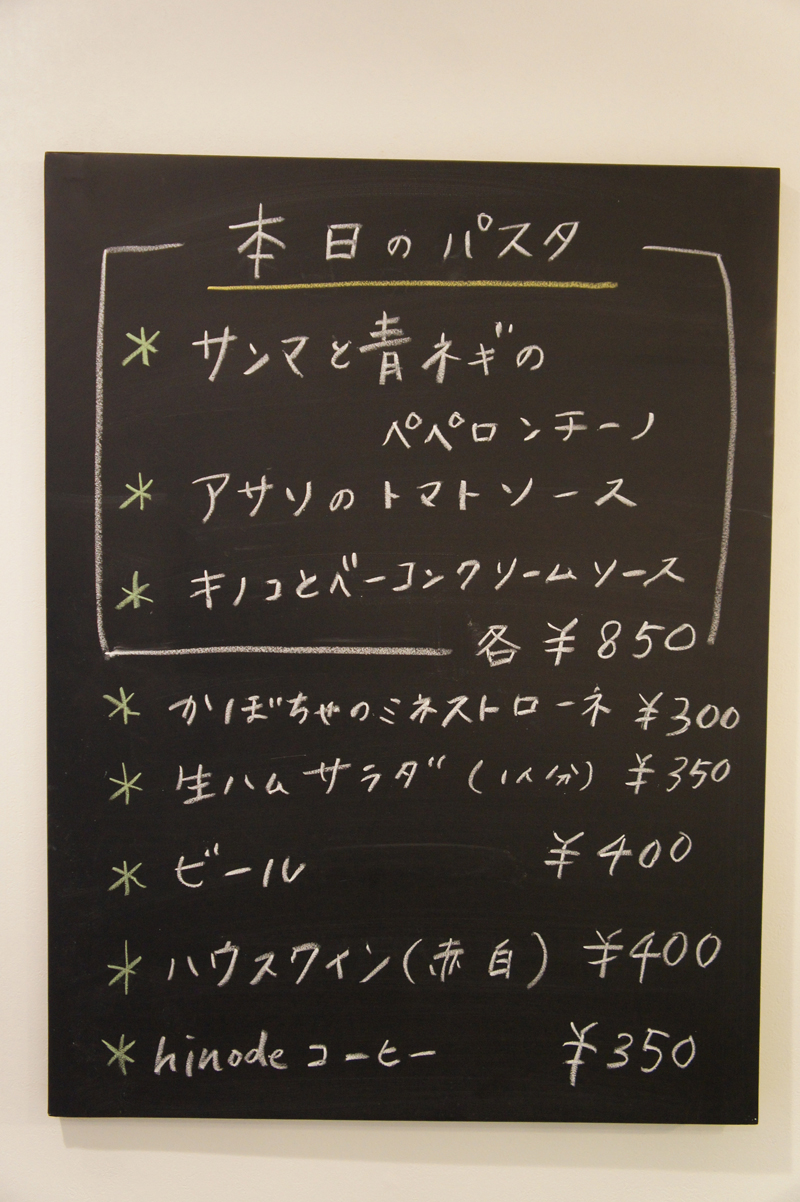 本日のパスタ
* サンマと青ネギの
ペペロンチーノ
* アサリのトマトソース
* キノコとベーコンクリームソース
各 ¥850
* かぼちゃのミネストローネ ¥300
* 生ハムサラダ(1人分) ¥350
* ビール ¥400
* ハウスワイン(赤 白) ¥400
* hinode コーヒー ¥350